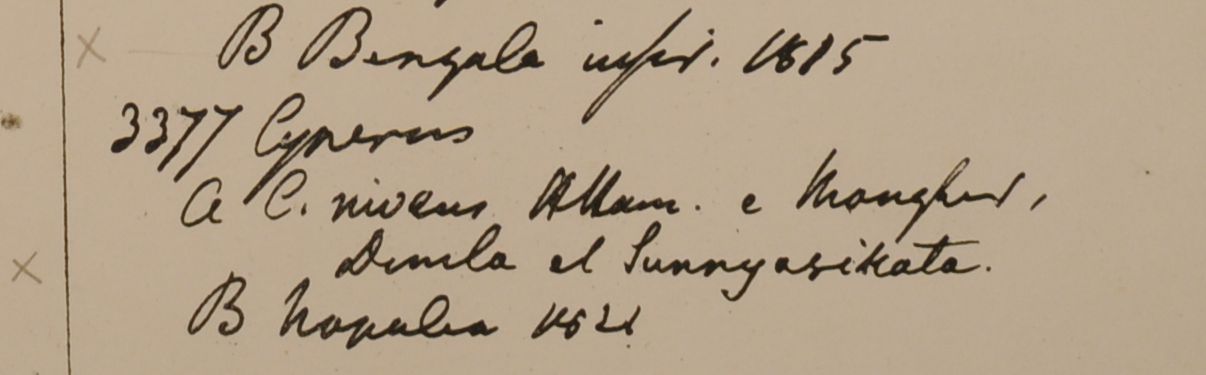 B Bengala infer. 1815
3377 Cyperus
a C. niveus HHam. e Monghur,
Dumla et Sunnyasikata.
B Napalia 1821